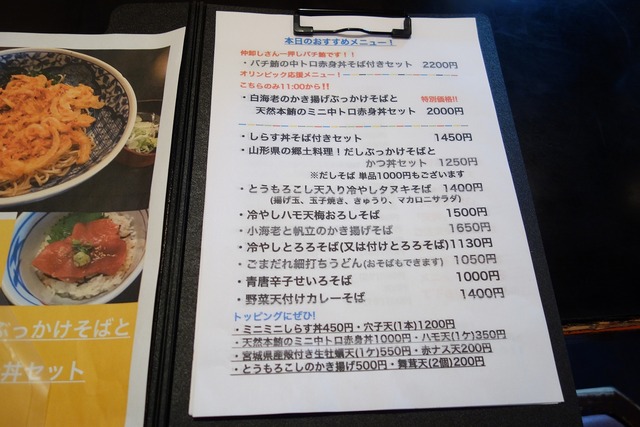 本日のおすすめメニュー!
仲卸しさん一押しバチ鮪です!!
・バチ鮪の中トロ赤身丼そば付きセット 2200円
オリンピック応援メニュー!
こちらのみ11:00から!!
・白海老のかき揚げぶっかけそばと 特別価格!!
天然本鮪のミニ中トロ赤身丼セット 2000円
・しらす丼そば付きセット 1450円
・山形県の郷土料理!だしぶっかけそばと
かつ丼セット 1250円
※だしそば 単品1000円もございます
・とうもろこし天入り冷やしタヌキそば 1400円
(揚げ玉、玉子焼き、きゅうり、マカロニサラダ)
・冷やしハモ天梅おろしそば 1500円
・小海老と帆立のかき揚げそば 1650円
・冷やしとろろそば(又は付けとろろそば)1130円
・ごまだれ細打ちうどん(おそばもできます) 1050円
・青唐辛子せいろそば 1000円
・野菜天付けカレーそば 1400円
トッピングにぜひ!
・ミニミニしらす丼450円・穴子天(1本)1200円
・天然本鮪のミニ中トロ赤身丼1000円・ハモ天(1ケ)350円
・宮城県産殻付き生牡蠣天(1ケ)550円・赤ナス天200円
・とうもろこしのかき揚げ500円・舞茸天(2個)200円
ぶっかけそばと
丼セット